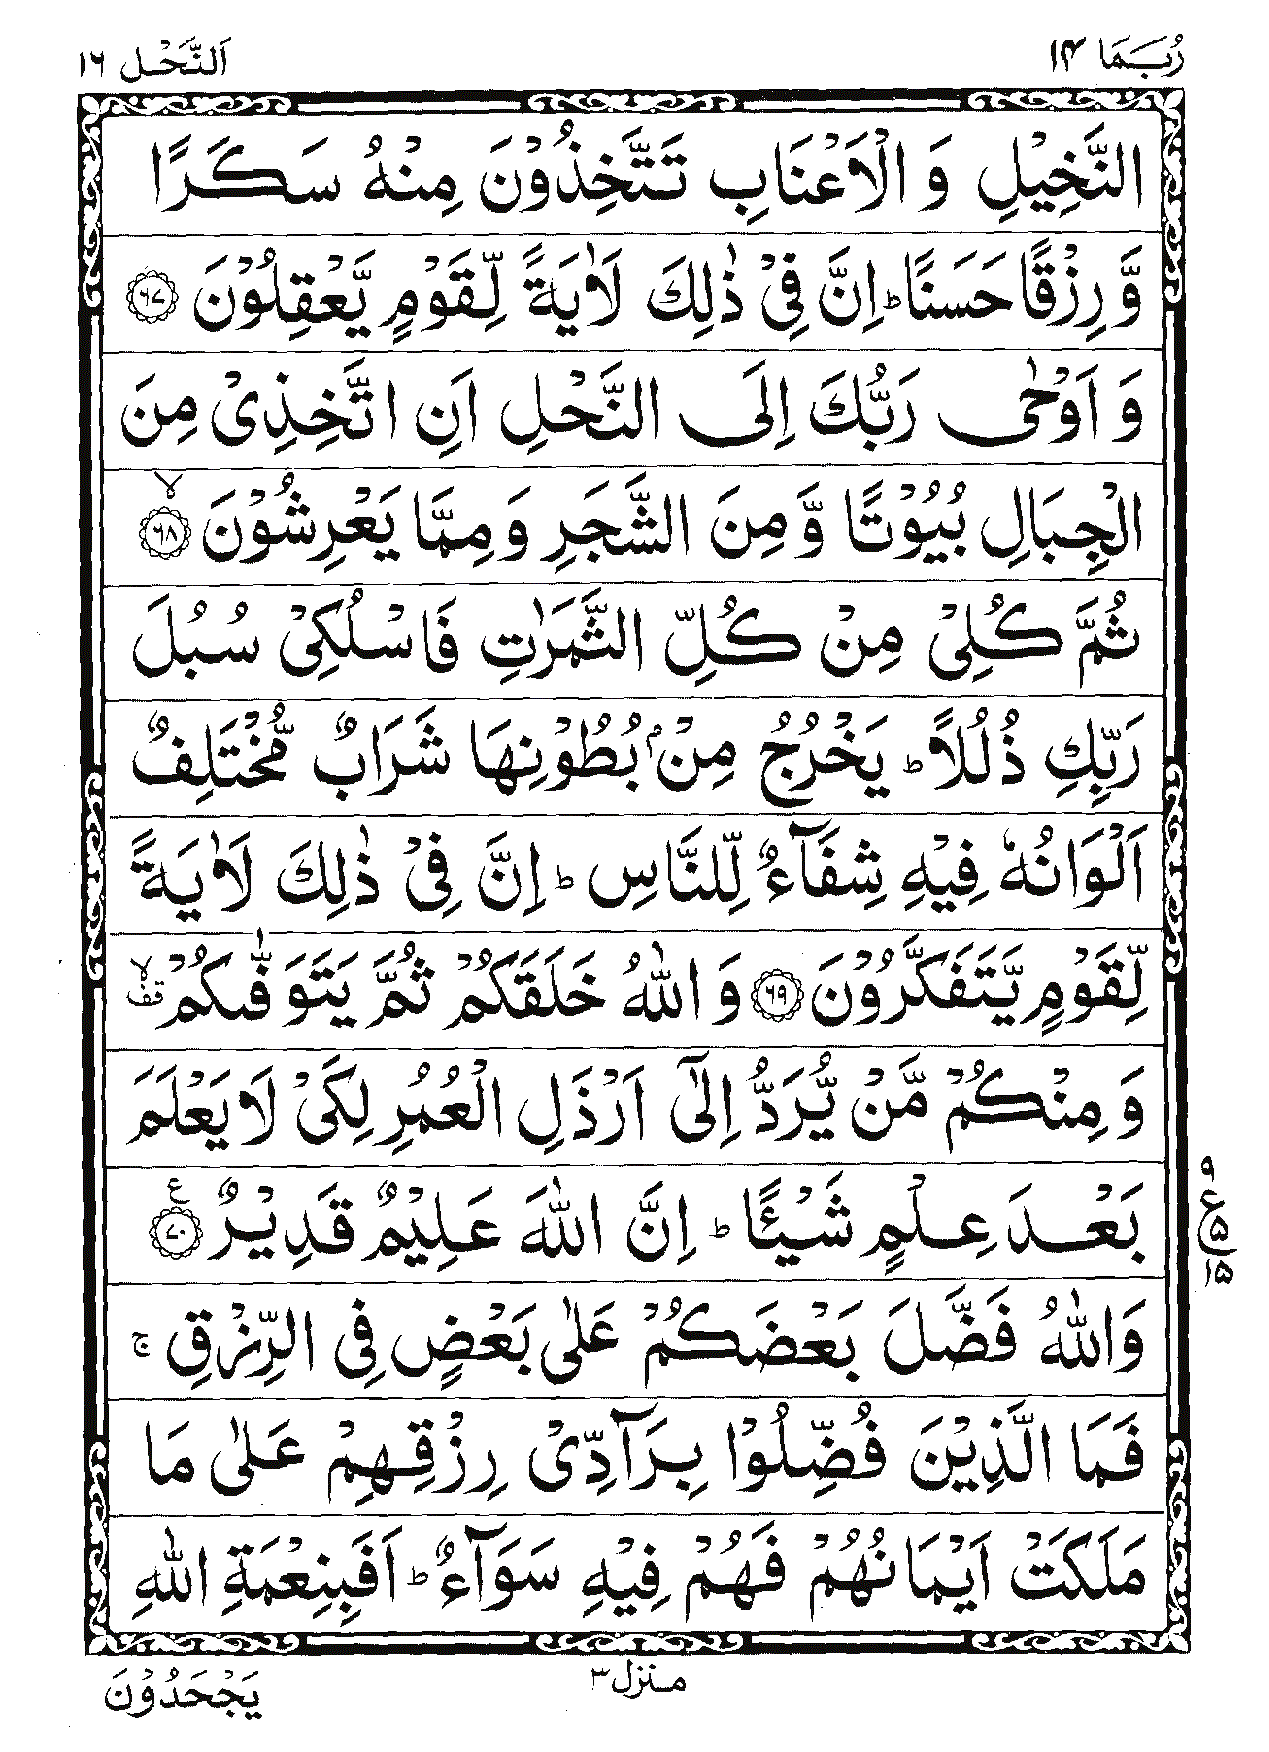 رُبَمَا ١٤
اَلنَّحْل ١٦
النَّخِيْلِ وَ الْاَعْنَابِ تَتَّخِذُوْنَ مِنْهُ سَكَرًا
وَّ رِزْقًا حَسَنًا ؕ اِنَّ فِيْ ذٰلِكَ لَاٰيَةً لِّقَوْمٍ يَّعْقِلُوْنَ ﴿۶۷﴾
وَ اَوْحٰى رَبُّكَ اِلَى النَّحْلِ اَنِ اتَّخِذِيْ مِنَ
الْجِبَالِ بُيُوْتًا وَّ مِنَ الشَّجَرِ وَ مِمَّا يَعْرِشُوْنَ ﴿۶۸﴾ ۙ
ثُمَّ كُلِيْ مِنْ كُلِّ الثَّمَرٰتِ فَاسْلُكِيْ سُبُلَ
رَبِّكِ ذُلُلًا ؕ يَخْرُجُ مِنْۢ بُطُوْنِهَا شَرَابٌ مُّخْتَلِفٌ
اَلْوَانُهٗ فِيْهِ شِفَآءٌ لِّلنَّاسِ ؕ اِنَّ فِيْ ذٰلِكَ لَاٰيَةً
لِّقَوْمٍ يَّتَفَكَّرُوْنَ ﴿۶۹﴾ وَ اللّٰهُ خَلَقَكُمْ ثُمَّ يَتَوَفّٰىكُمْ ۙ قف
وَ مِنْكُمْ مَّنْ يُّرَدُّ اِلٰۤى اَرْذَلِ الْعُمُرِ لِكَيْ لَا يَعْلَمَ
بَعْدَ عِلْمٍ شَيْـًٔا ؕ اِنَّ اللّٰهَ عَلِيْمٌ قَدِيْرٌ ﴿۷۰﴾ ع
٩ ع ۵ ١۵
وَ اللّٰهُ فَضَّلَ بَعْضَكُمْ عَلٰى بَعْضٍ فِي الرِّزْقِ ۚ
فَمَا الَّذِيْنَ فُضِّلُوْا بِرَآدِّيْ رِزْقِهِمْ عَلٰى مَا
مَلَكَتْ اَيْمَانُهُمْ فَهُمْ فِيْهِ سَوَآءٌ ؕ اَفَبِنِعْمَةِ اللّٰهِ
منزل ٣
يَجْحَدُوْنَ